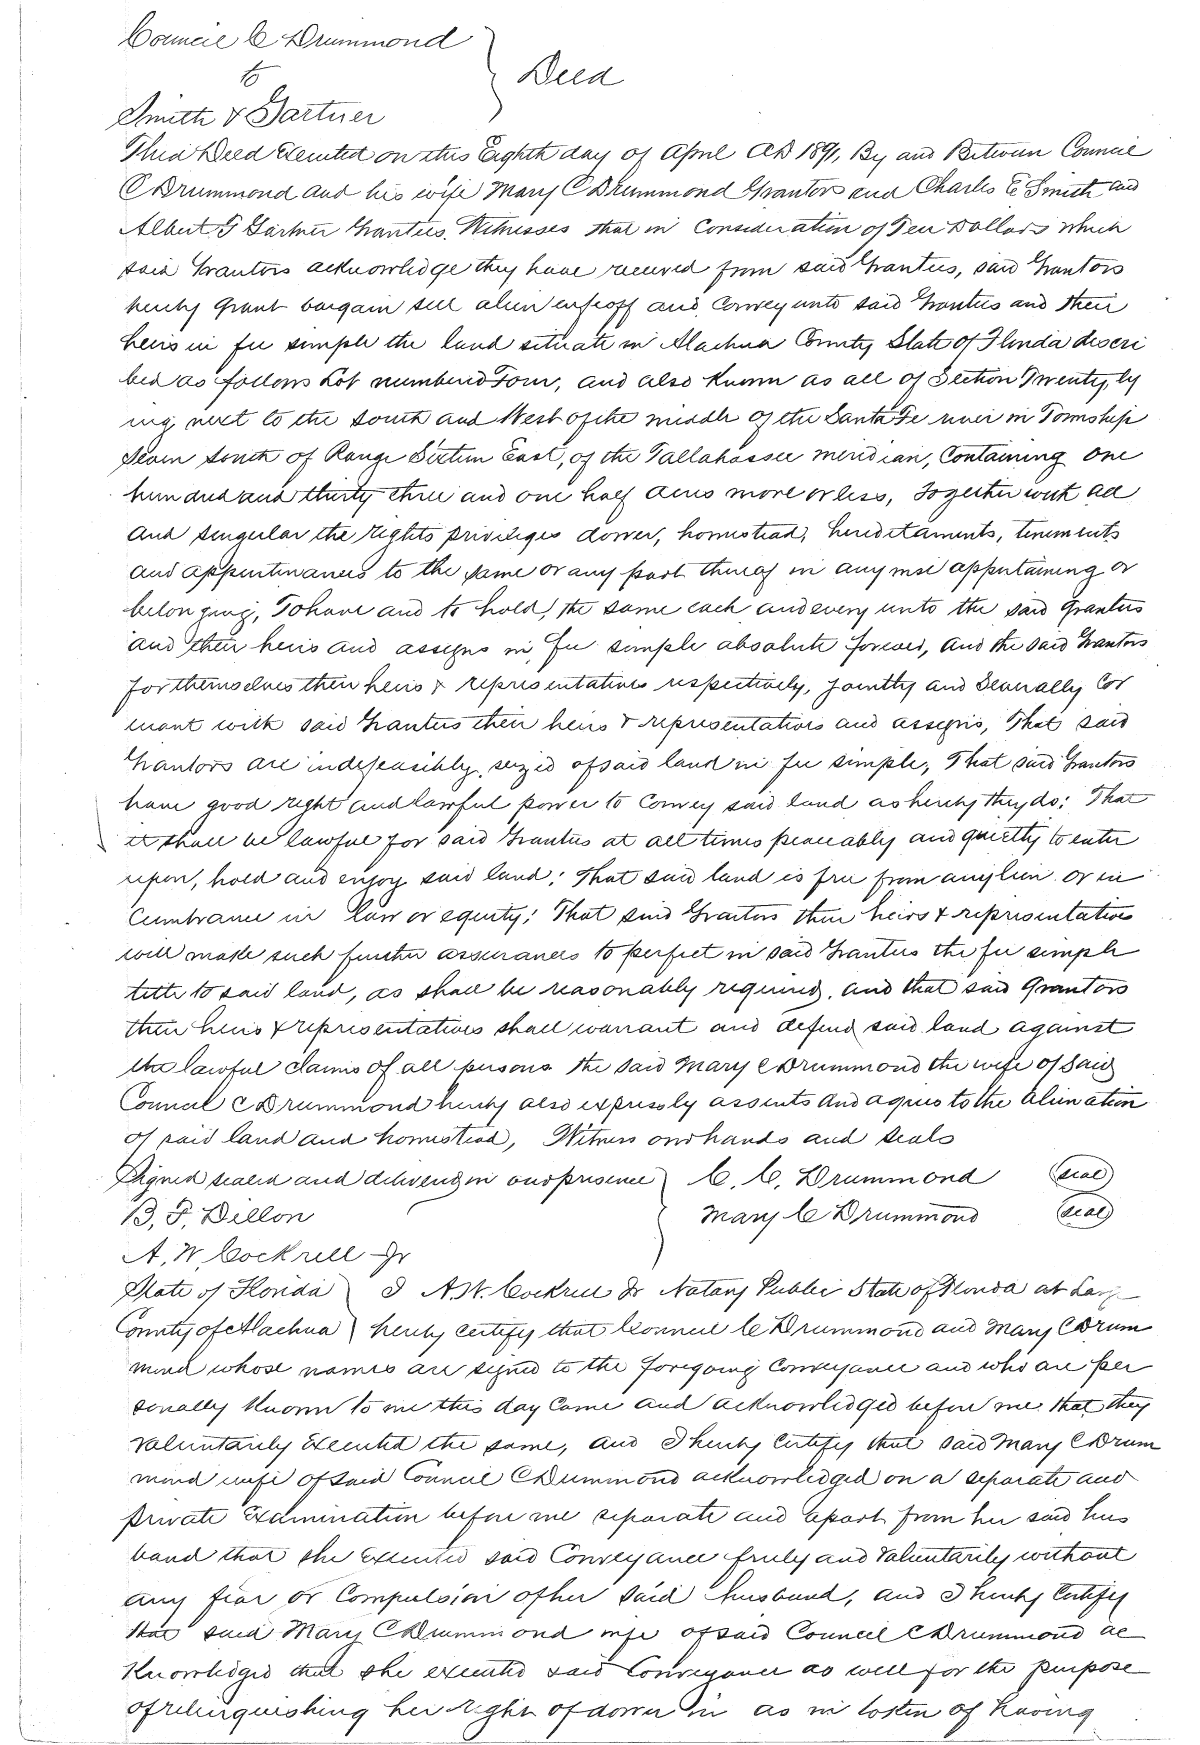 Council C Drummond
to
Deed
Smith & Gartner
This Deed Executed on this Eighth day of April AD 1891, By and Between Council
C Drummond and his wife Mary C Drummond Grantors and Charles E Smith and
Albert T Gartner Grantees. Witnesses that in Consideration of Ten Dollars which
said Grantors acknowledge they have received from said Grantees, said Grantors
hereby grant bargain sell alien enfeoff and Convey unto said Grantees and their
heirs in fee simple the land situate in Alachua County State of Florida descri
bed as follows Lot numbered Four, and also known as all of Section Twenty, ly
ing next to the South and West of the middle of the Santa Fe river in Township
Seven South of Range Sixteen East, of the Tallahassee meridian, Containing one
hundred and thirty three and one half acres more or less, Together with all
and singular the rights privileges dower, homestead, hereditaments, tenements
and appurtenances to the same or any part thereof in any wise appertaining or
belonging, To have and to hold, the same each and every unto the said grantees
and their heirs and assigns in fee simple absolute forever, and the said Grantors
for themselves their heirs & representatives respectively, jointly and severally Cov
enant with said Grantees their heirs & representatives and assigns, That said
Grantors are indefeasibly seized of said land in fee simple; That said Grantors
have good right and lawful power to Convey said land as hereby they do; That
it shall be lawful for said Grantees at all times peaceably and quietly to enter
upon, hold and enjoy said land; That said land is free from any lien or in
cumbrance in law or equity; That said Grantors their heirs & representatives
will make such further assurances to perfect in said Grantees the fee simple
title to said land, as shall be reasonably required, and that said Grantors
their heirs & representatives shall warrant and defend said land against
the lawful claims of all persons the said Mary C Drummond the wife of said
Council C Drummond hereby also expressly assents and agrees to the alienation
of said land and homestead, Witness our hands and seals
Signed sealed and delivered in our presence C. C. Drummond (seal)
B. F. Dillon Mary C Drummond (seal)
A. W. Cockrell Jr
State of Florida I A. W. Cockrell Jr Notary Public State of Florida at Large
County of Alachua hereby certify that Council C Drummond and Mary C Drum
mond whose names are signed to the foregoing Conveyance and who are per
sonally known to me this day came and acknowledged before me that they
voluntarily Executed the same, and I hereby Certify that said Mary C Drum
mond wife of said Council C Dummond acknowledged on a separate and
private Examination before me separate and apart from her said hus
band that she Executed said Conveyance freely and voluntarily without
any fear or Compulsion of her said husband, and I hereby Certify
that said Mary C Drummond wife of said Council C Drummond ac
knowledged that she executed said Conveyance as well for the purpose
of relinquishing her right of dower in as in token of having